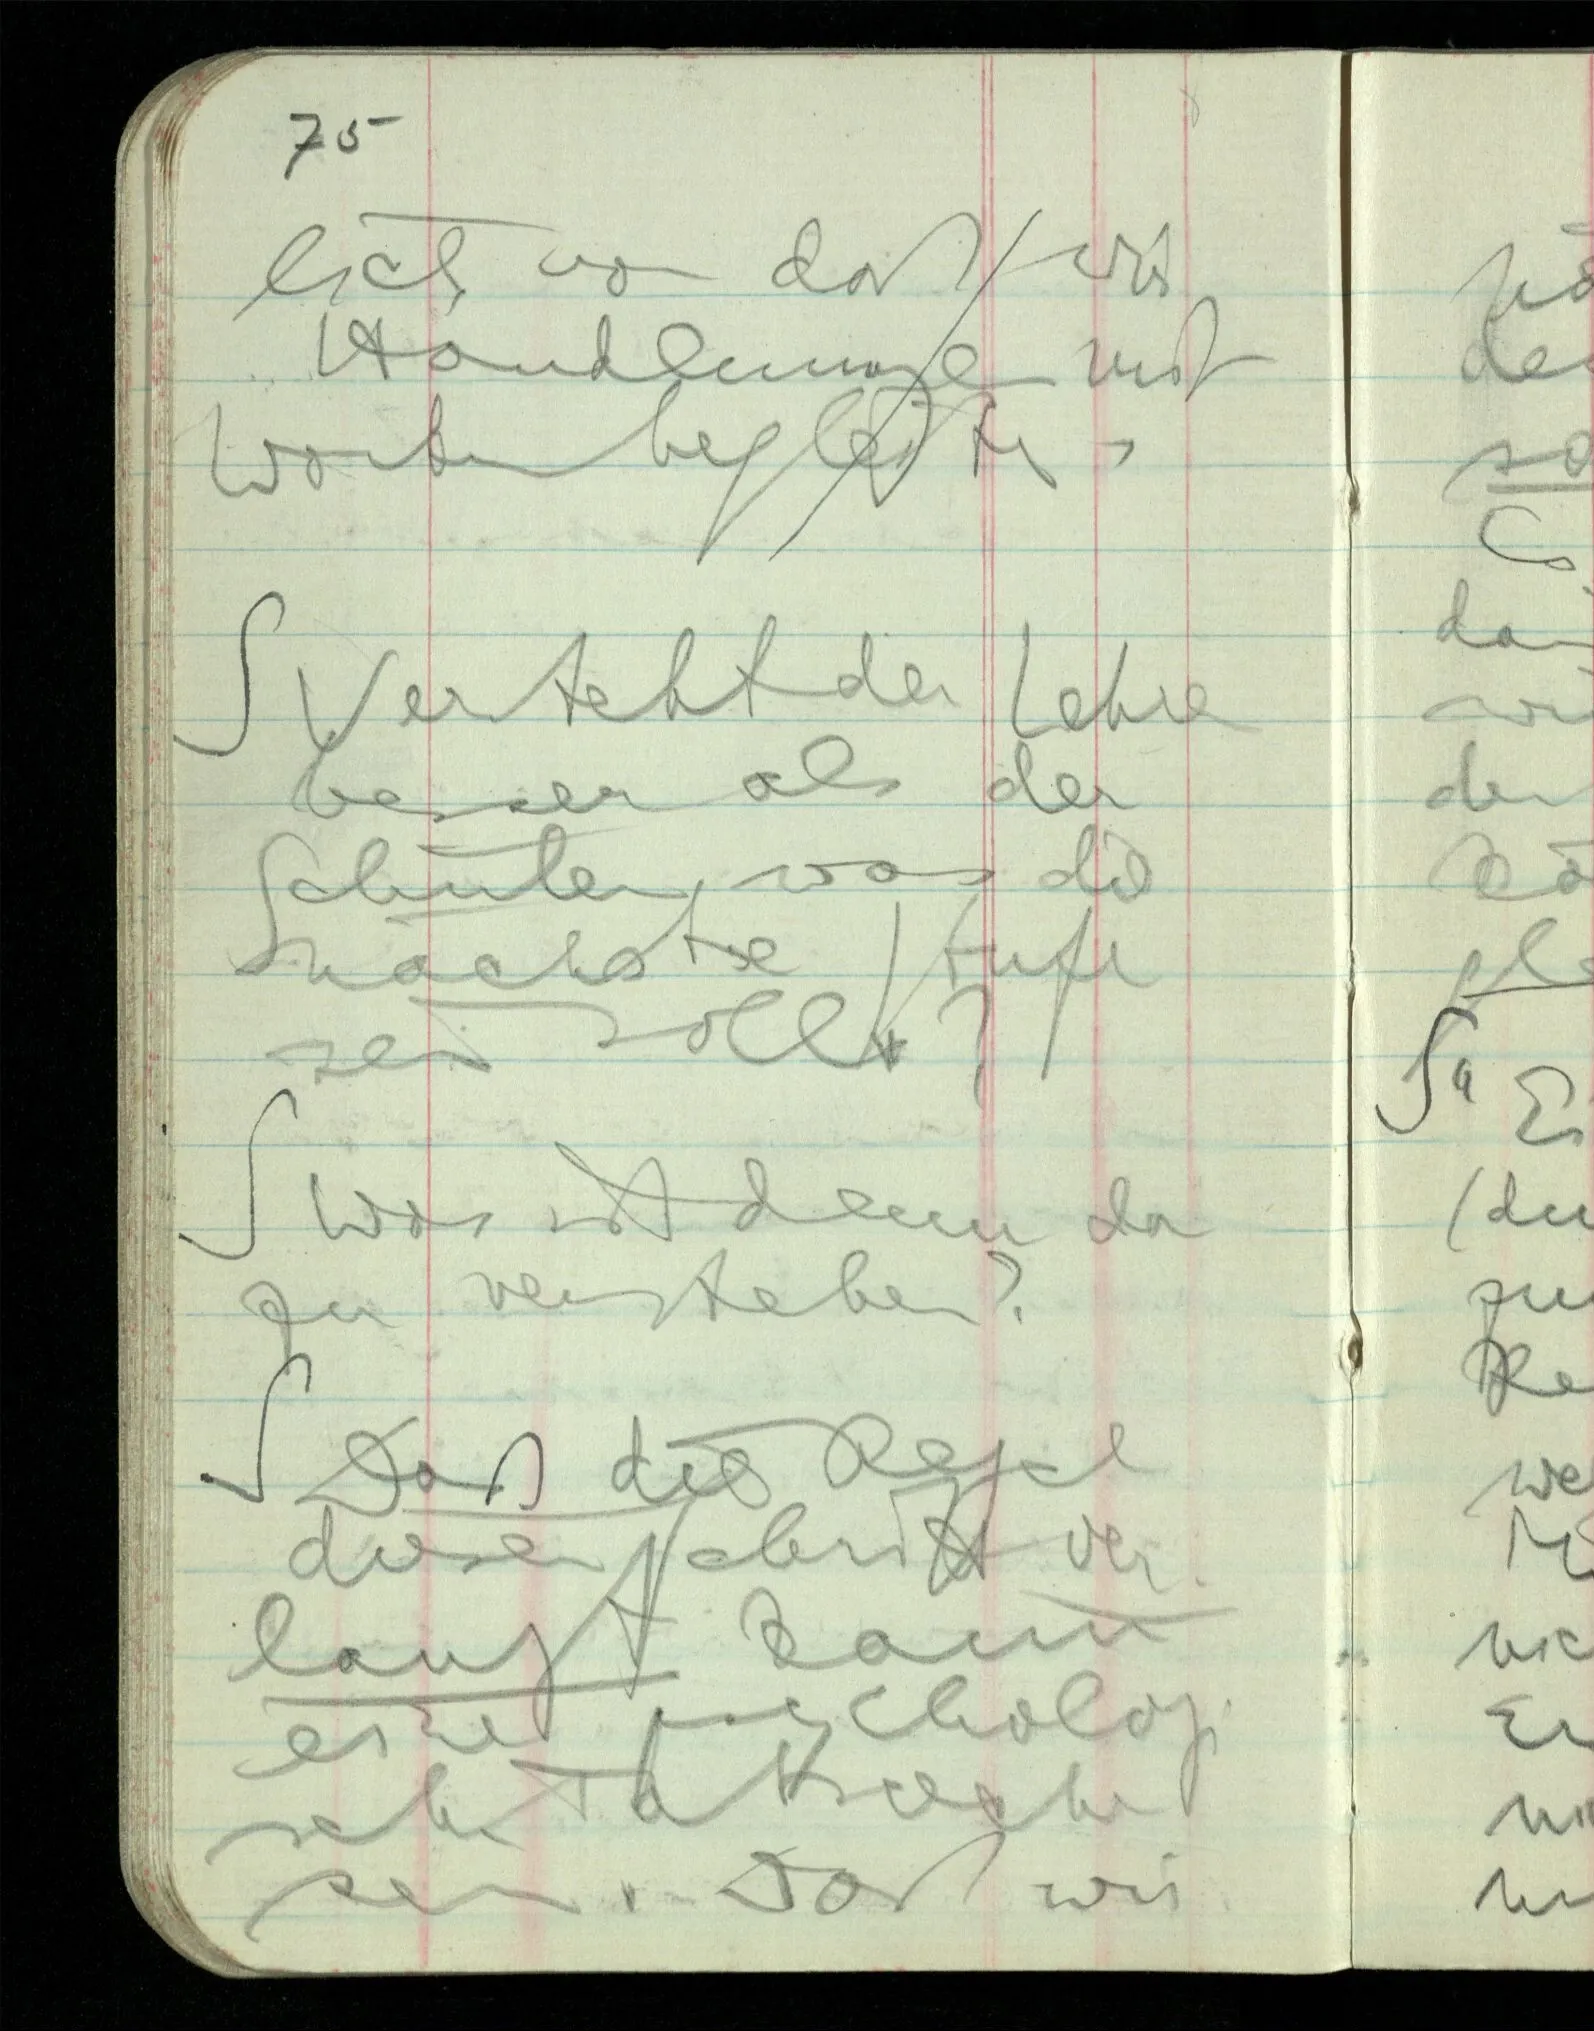 75
lich vor daß wir
Handlungen mit
Worten begleiten
∫ Versteht der Lehrer
besser als der
Schüler, was die
nächste Stufe
sein soll?
∫ Was ist denn da
zu verstehen?
∫ Daß die Regel
diesen Schritt ver-
langt kann
eine psychologi-
sche Tatsache
sein. Daß wir
de
so
∫a Es
(du
zu
Re
we
nic
Er